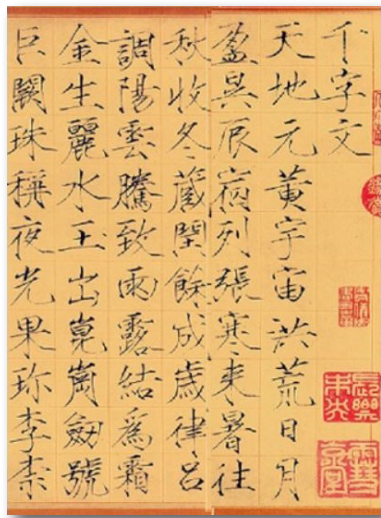 千字文
天地元黃宇宙洪荒日月
盈昃辰宿列張寒来暑往
秋收冬藏閏餘成歲律呂
調陽雲騰致雨露結爲霜
金生麗水玉出崑崗劒號
巨闕珠稱夜光果珎李柰